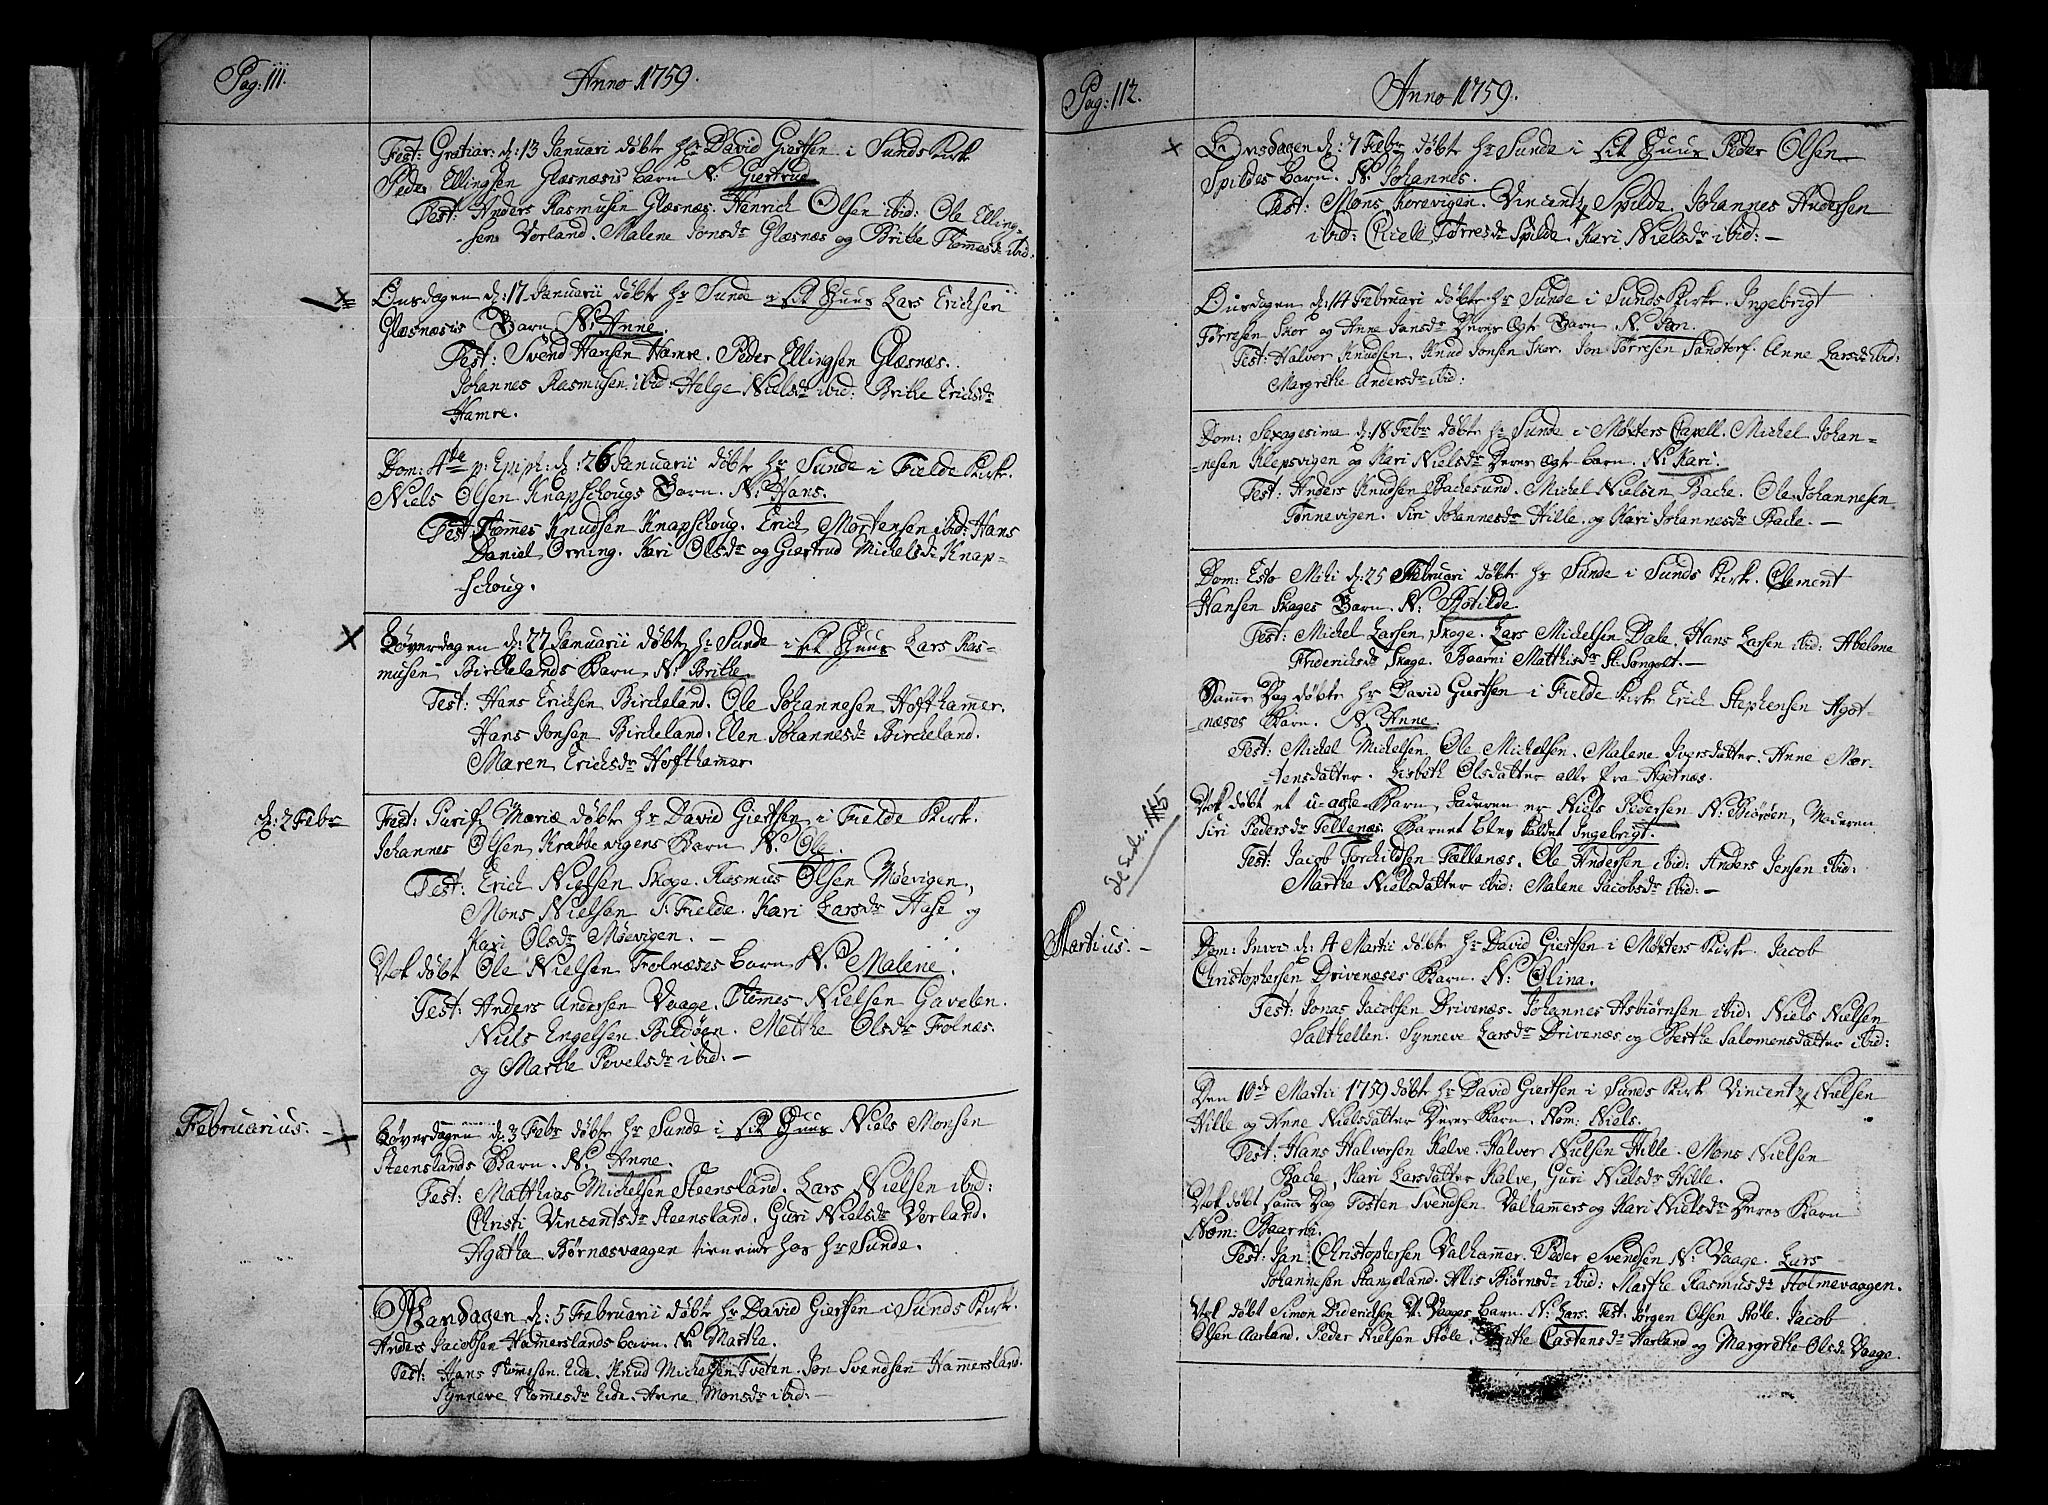 Pag: 111.
Anno 1759.
Fest: Gratiar: d: 13 Januarii døbte Hr David Giertsen i Sunds Kirk
Peder Ellingsen Glæsnæsis barn N: Giertrud
Test: Anders Rasmusen Glæsnæs. Henrich Olsen ibid: Ole Elling-
-sen Vorland. Malene Jonsdr Glæsnæs og Britte Thommesdr ibid.
Onsdagen d: 17 Januarii døbte Hr Sunde i sit Huus Lars Erichsen
Glæsnæsis Barn N: Anne.
Test: Svend Hansen Hamre. Peder Ellingsen Glæsnæs.
Johannes Rasmusen ibid. Helge Nielsdr ibid: Britte Erichsdr
Hamre.
Dom: 4te p: Epiph: d: 26 Januarii døbte Hr Sunde i Fielde Kirk.
Niels Olsen Knapschougs Barn. N: Hans.
Test: Thommes Knudsen Knapschoug. Erich Mortensen ibid: Hans
Daniel Orning. Kari Olsdr og Giertrud Michelsdr Knap-
-schoug.
Løverdagen d: 27 Januarii døbte Hr Sunde i sit Huus Lars Ras-
musen Birchelands Barn N: Britte.
Test: Hans Erichsen Bircheland. Ole Johannesen Hofthamer.
Hans Jonsen Bircheland. Elen Johannesdr Bircheland.
Maren Erichsdr Hofthamer
d: 2 Febr
Fest: Purif: Mariæ døbte Hr David Giertsen i Fielde Kirk.
Johannes Olsen Krabbevigens Barn N: Ole.
Test: Erich Nielsen Skoge. Rasmus Olsen Møevigen,
Mons Nielsen S: Fielde. Kari Larsdr Aase og
Kari Olsdr Møevigen. -
Nok døbt Ole Nielsen Folnæses barn N: Malene.
Test: Anders Andersen Vaage. Thommes Nielsen Gavelen.
Niels Engelsen Bildøen. Mette Olsdr Folnæs.
og Marthe Povelsdr ibid: -
Februarius. -
Løverdagen d: 3 Febr døbte Hr Sunde i sit Huus Niels Monsen
Steenslands Barn. N: Anne.
Test: Matthias Michelsen Steensland. Lars Nielsen ibid:
Christi Vincentsdr Steensland. Guri Nielsdr Vorland.
Agatha Børnæsvaagen tienende hos Hr Sunde.
Mandagen d: 5 Februarii døbte Hr David Giertsen i Sunds Kirk.
Anders Jacobsen Hammerslands barn. N: Marthe.
Test: Hans Thommesen Eide. Knud Michelsen Tveten. Jon Svendsen Hammersland.
Synneve Thommesdr Eide. Anne Monsdr ibid: -
Pag: 112.
Anno 1759.
Onsdagen d: 7 Febr døbte Hr Sunde i sit Huus Peder Olsen
Spildes barn. N: Johannes.
Test: Mons Korevigen. Vincentz Spilde. Johannes Andersen
ibid: Torresdr Spilde. Kari Nielsdr ibid: -
Onsdagen d: 14 Februari døbte Hr Sunde i Sunds Kirke. Ingebrigt
Torresen Skor og Anne Jansdr Deres Ægte Barn N: Jon.
Test: Halvor Knudsen. Knud Jonsen Skor. Jon Torresen Sandtorf. Anne Larsdr ibid:
Margrethe Andersdr ibid:
Dom: Sexagesima d: 18 Febr døbte Hr Sunde i Møxters Capell. Michel Johan-
-nesen Klepsvigen og Kari Nielsdr Deres Ægte barn. N: Kari.
Test: Anders Knudsen Bachesund. Michel Nielsen Bache. Ole Johannesen
Tønnevigen. Siri Johannesdr Hille. og Kari Johannesdr Bache. -
Dom: Esto Mihi d: 25 Februari døbte Hr Sunde i Sunds Kirk. Clement
Hansen Skoges Barn. N: Botilde
Test: Michel Larsen Skoge. Lars Michelsen Dale. Hans Larsen ibid: Abelone
Friderichsdr Skoge. Baarni Matthisdr St: Songolt. -
Samme Dag døbte Hr David Giertsen i Fielde Kirk Erich Stephensen Agot-
-næses Barn. N: Anne.
Test: Michel Michelsen, Ole Michelsen. Malene Iversdatter. Anne Mor-
-tensdatter. Lisbeth Olsdatter alle fra Agotnæs.
Nok døbt et u-ægte Barn, Faderen er Niels Pedersen N: Biorøen, Moderen
Siri Pedersdr Fellenæs. Barnet blev kaldet Ingebrigt.
Test: Jacob Torchildsen Fællenæs. Ole Andersen ibid: Anders Jensen ibid:
Marthe Nielsdatter ibid: Malene Jacobsdr ibid: -
115
Martius. -
Dom: Invoc d: 4 Martii døbte Hr David Giertsen i Møxters Kirk. Jacob
Christophersen Drivenæses Barn. N: Olina.
Test: Jonas Jacobsen Drivenæs. Johannes Asbiørnsen ibid: Niels Nielsen
Salthellen. Synneve Larsdr Drivenæs og Berthe Salomonsdatter ibid:
Den 10de Martii 1759 døbte Hr David Giertsen i Sunds Kirk Vincentz Nielsen
Hille og Anne Nielsdatter Deres Barn. Nom: Niels.
Test: Hans Halvorsen Kalve. Halvor Nielsen Hille. Mons Nielsen
Bache, Kari Larsdatter Kalve, Guri Nielsdr Hille.
Nok døbt samme Dag Tosten Svendsen Valhamers og Kari Nielsdr Deres Barn
Nom: Baarni.
Test: Jan Christophersen Valhamer. Peder Svendsen N: Vaage. Lars
Johannesen Stangeland. Alis Biørnsdr ibid: Marthe Rasmusdr Holmevaagen.
Nok døbt Simon Diderichsen V: Vaages barn. N: Lars. Test: Jørgen Olsen Støle. Jacob
Olsen Aarland. Peder Nielsen Støle. Castensdr Harland og Margrethe Olsdr Vaage.